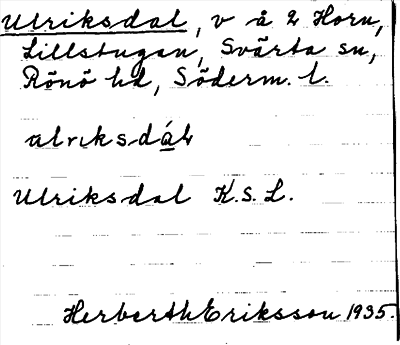 Ulriksdal, v å 2 Horn,
Lillstugan, Svärta sn,
Rönö hd, Söderm. l.
Ulriksdal K.S.L.
Herberth Eriksson 1935.